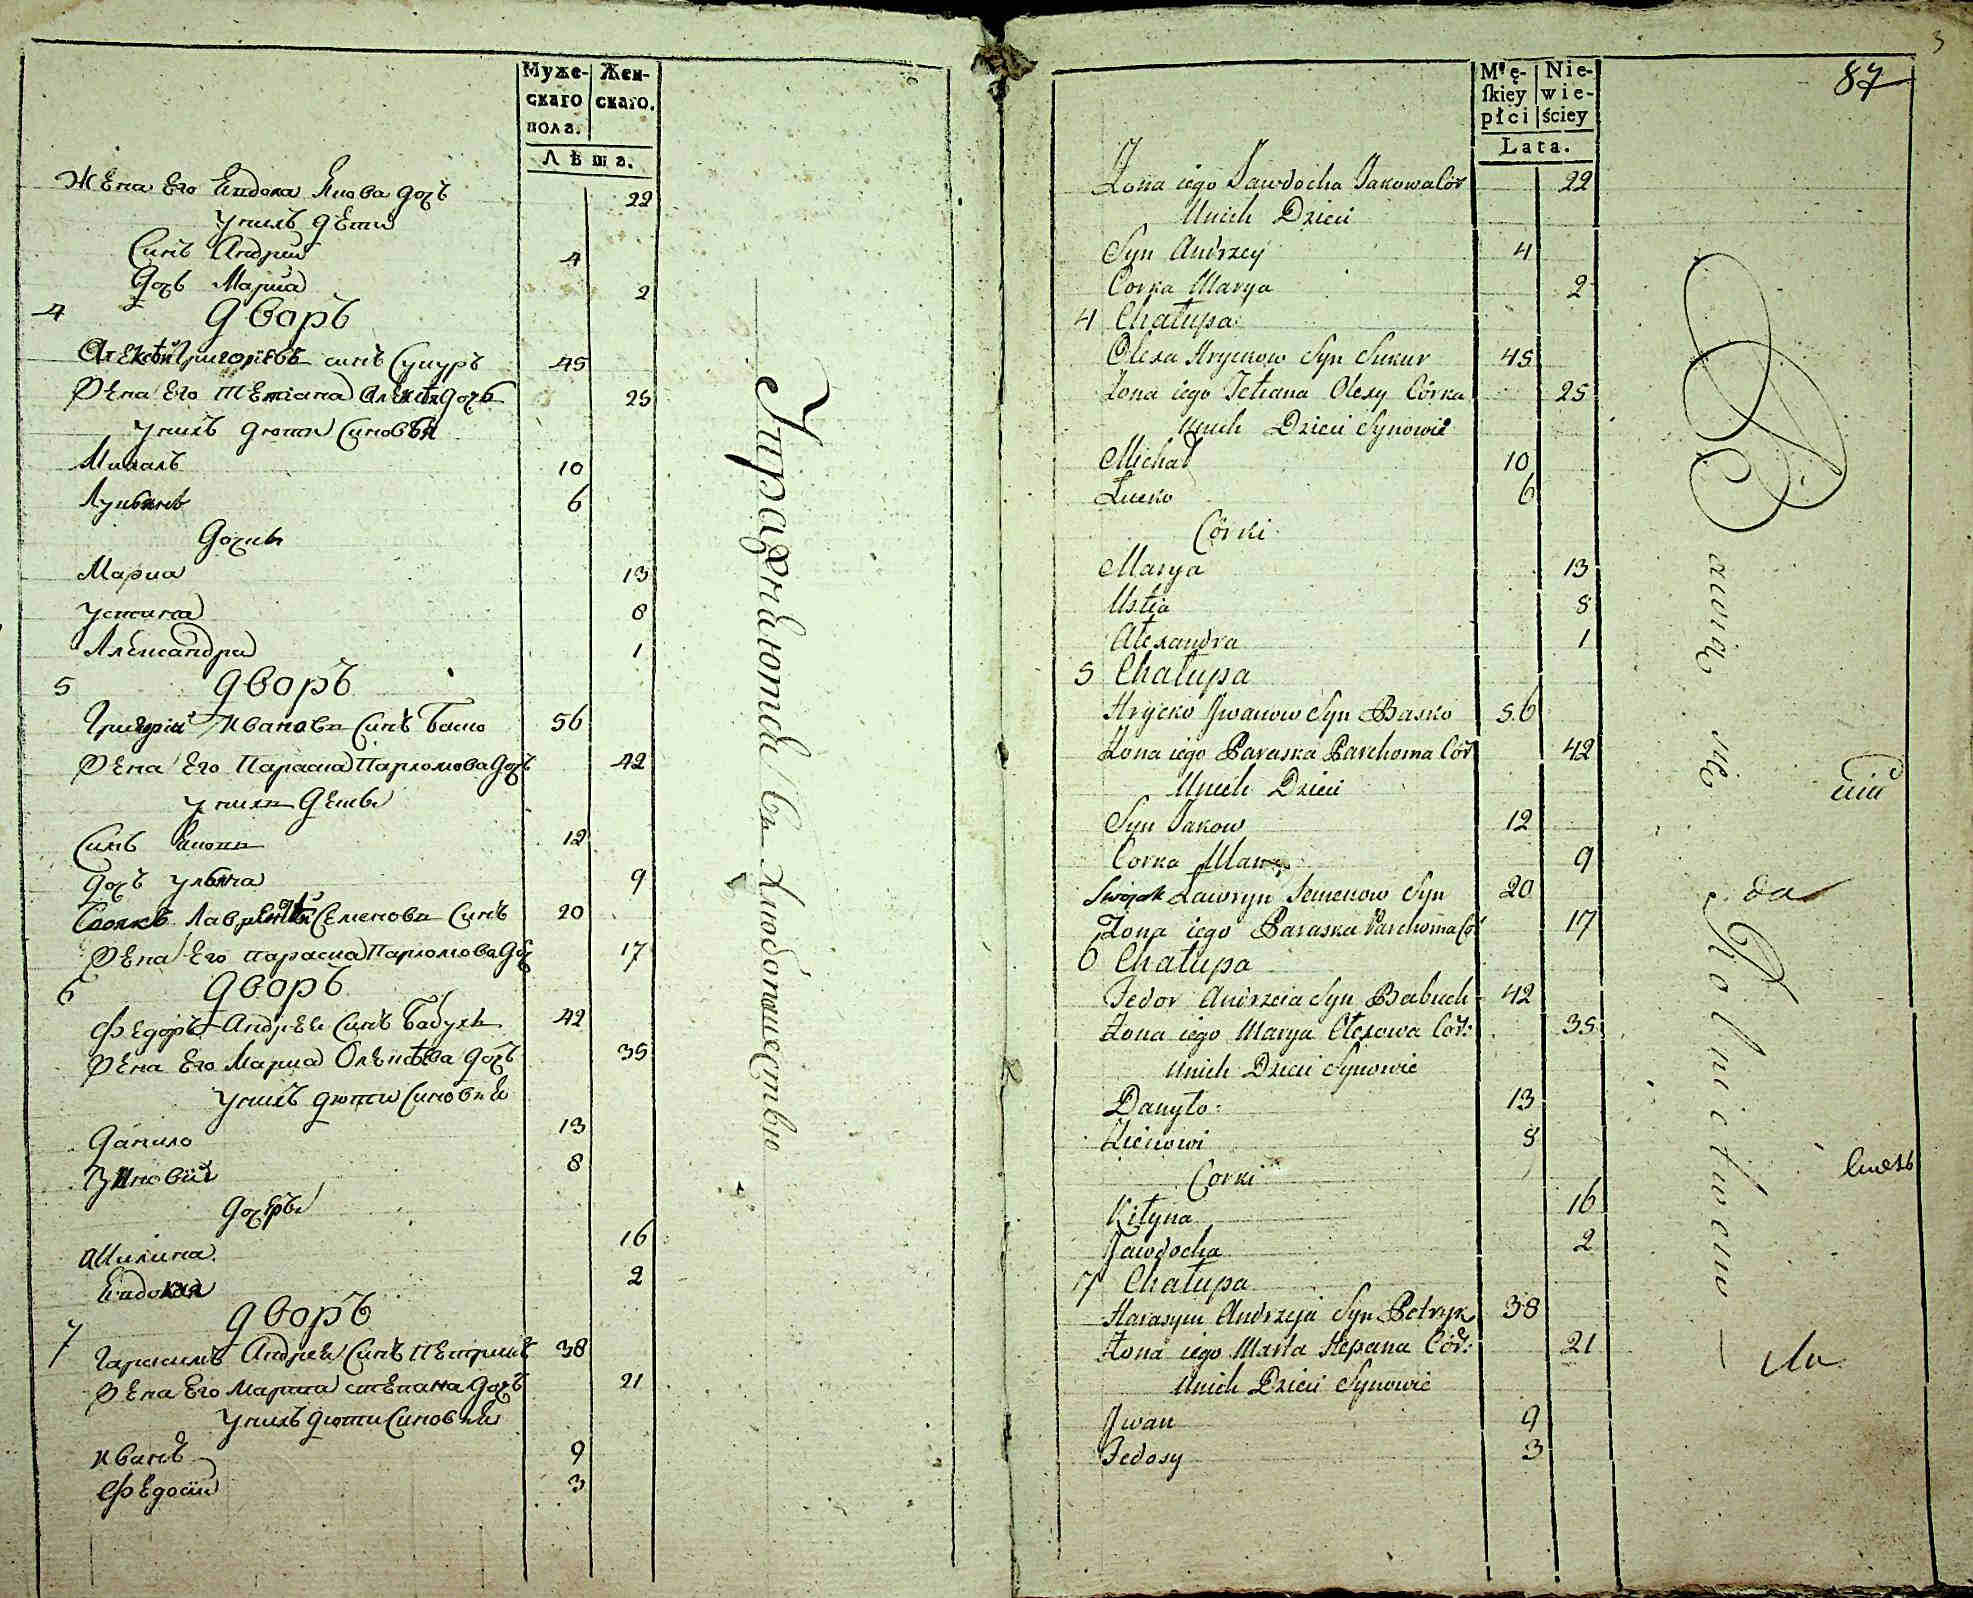 Муже- Жен-
скаго скаго.
пола.
Лѣта.
Жена Его Евдокиа Якова дочъ 22
У нихъ дѣти
Синъ Андрий 4
Дочь Мариа 2
4 Дворъ
Алексѣй Григориевъ синъ Сукуръ 45
Жена Его Тетиана Алексѣя дочь 25
У нихъ дюти Синовѣя
Михалъ 10
Лукиянъ 6
Дочки
Мариа 13
Устина 8
Александра 1
5 Дворъ
Григорий Иванова Синъ Баско 56
Жена Его Параска Пархомова Дочъ 42
У нихъ Дети
Синъ Яковъ 12
Дочъ Улияна 9
Своякъ Лаврентѣй Семенова Синъ 20
Жена Его Параска Пархомова Доч 17
6 Дворъ
Федоръ Андреи Синъ Бабухъ 42
Жена Его Мариа Олексѣева дочъ 35
У нихъ дюти Синовѣе
Данило 13
Зиновий 8
Дочеры
Акилина 16
Евдокия 2
7 Дворъ
Гарасимъ Андреи Синъ Петрикъ 38
Жена Его Марта Степана Дочъ 21
У нихъ дюти Синовѣе
Иванъ 9
Федосий 3
Упражняются Съ Хлебопашествью
3
87
Mę- Nie-
ſkiey wie-
płci ściey
Lata.
Żona iego Jawdocha Jakowa Cór 22
U nich Dzieci
Syn Andrzey 4
Corka Marya 2
4 Chałupa
Olexa Hryckow Syn Sukur 45
Żona iego Tetiana Olexy Córka 25
U nich Dzieci Synowie
Michał 10
Łucko 6
Córki
Marya 13
Ustia 8
Alexandra 1
5 Chałupa
Hrycko Jwanow Syn Basko 56
Żona iego Paraska Parchoma Cór 42
U nich Dzieci
Syn Jakow 12
Corka Ulana 9
Swojak Ławryn Semenow Syn 20
Żona iego Paraska Parchoma Có 17
6 Chałupa
Fedor Andrzeia Syn Babuch 42
Żona iego Marya Olexowa Cór: 35
U nich Dzieci Synowie
Danyło: 13
Zienowi 8
Corki
Kiłyna 16
Jawdocha 2
7 Chałupa
Harasym Andrzeja Syn Petryk 38
Żona iego Marta Stepana Cór: 21
U nich Dzieci Synowie
Jwan 9
Fedosy 3
Bawią się Rolnictwem —
да